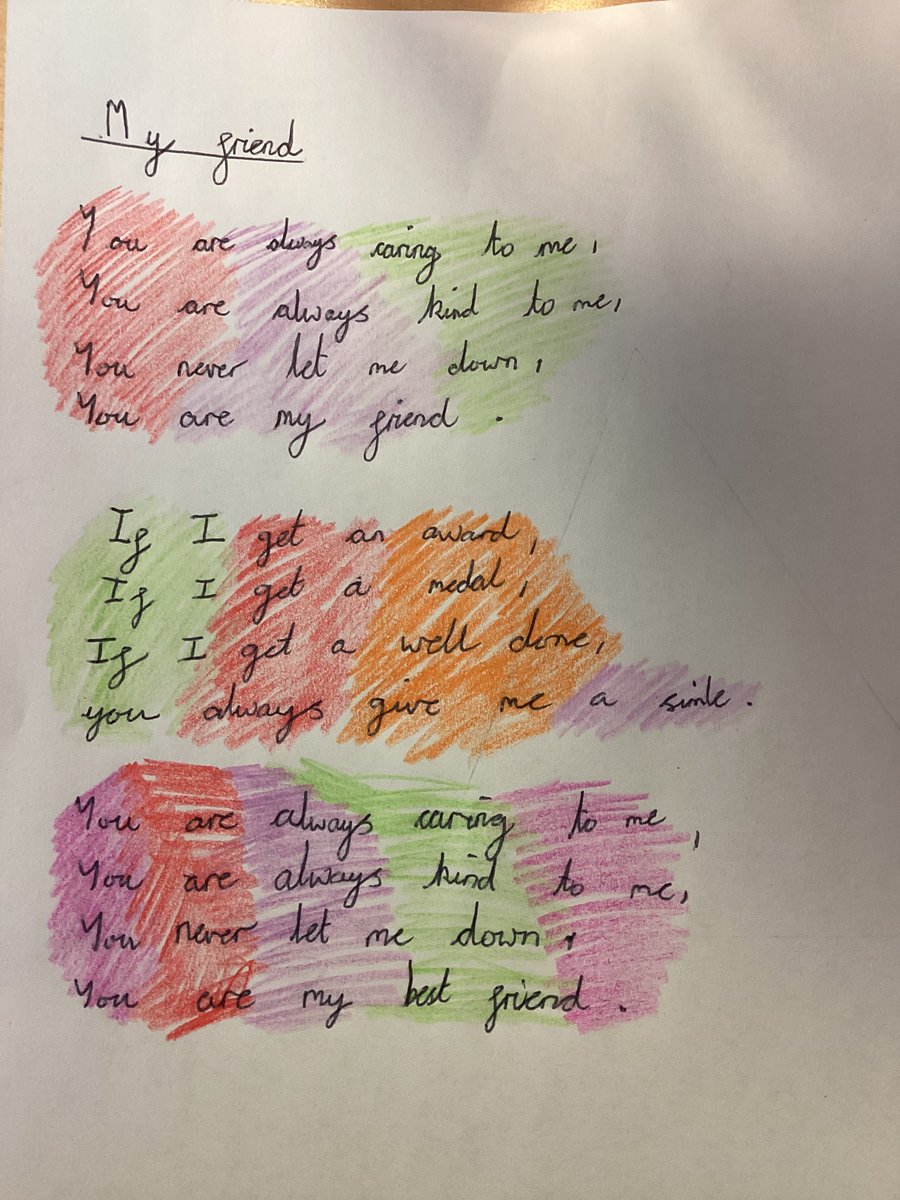 My friend
You are always caring to me,
You are always kind to me,
You never let me down,
You are my friend.
If I get an award,
If I get a medal,
If I get a well done,
you always give me a simle.
You are always caring to me,
You are always kind to me,
You never let me down,
You are my best friend.